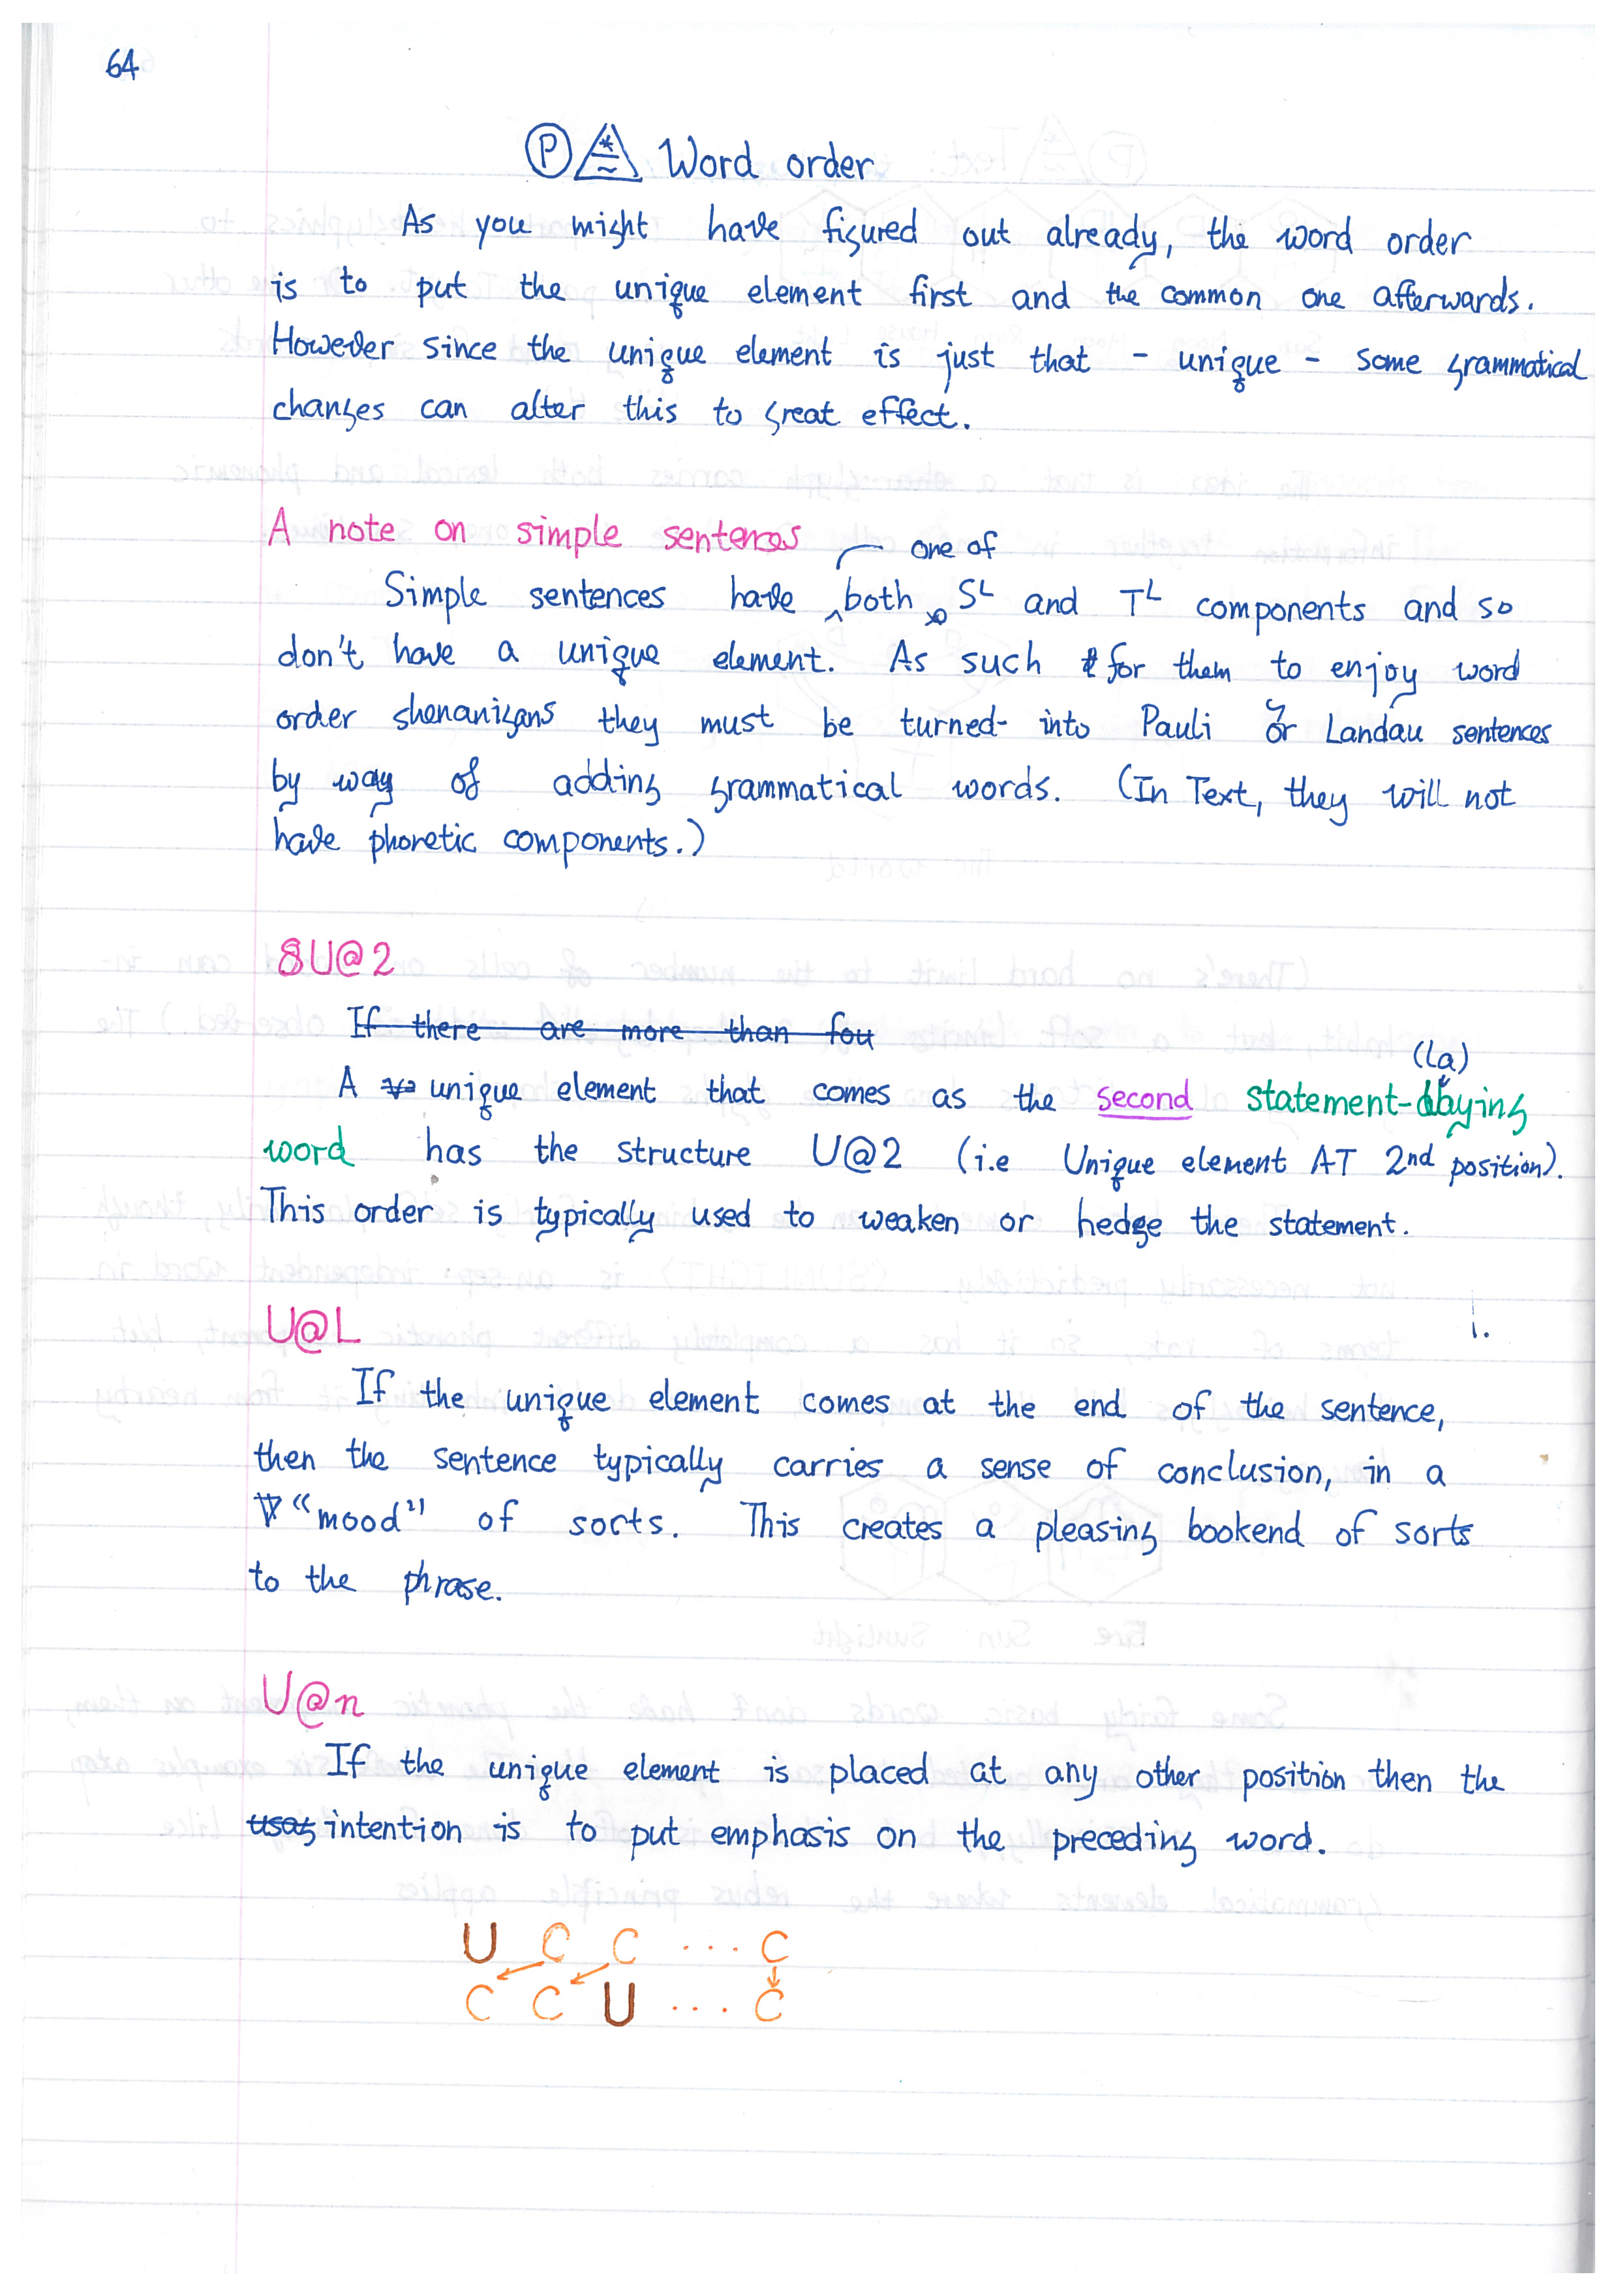 64
Ⓟ Word order
As you might have figured out already, the word order
is to put the unique element first and the common one afterwards.
However since the unique element is just that - unique - some grammatical
changes can alter this to great effect.
A note on simple sentences
one of
Simple sentences have both Sᴸ and Tᴸ components and so
don't have a unique element. As such for them to enjoy word
order shenanigans they must be turned into Pauli or Landau sentences
by way of adding grammatical words. (In Text, they will not
have phonetic components.)
U@2
If there are more than fou
(la)
A unique element that comes as the second statement-laying
word has the structure U@2 (i.e Unique element AT 2nd position).
This order is typically used to weaken or hedge the statement.
U@L
If the unique element comes at the end of the sentence,
then the sentence typically carries a sense of conclusion, in a
"mood" of sorts. This creates a pleasing bookend of sorts
to the phrase.
U@n
If the unique element is placed at any other position then the
intention is to put emphasis on the preceding word.
U C C ... C
C C U ... C